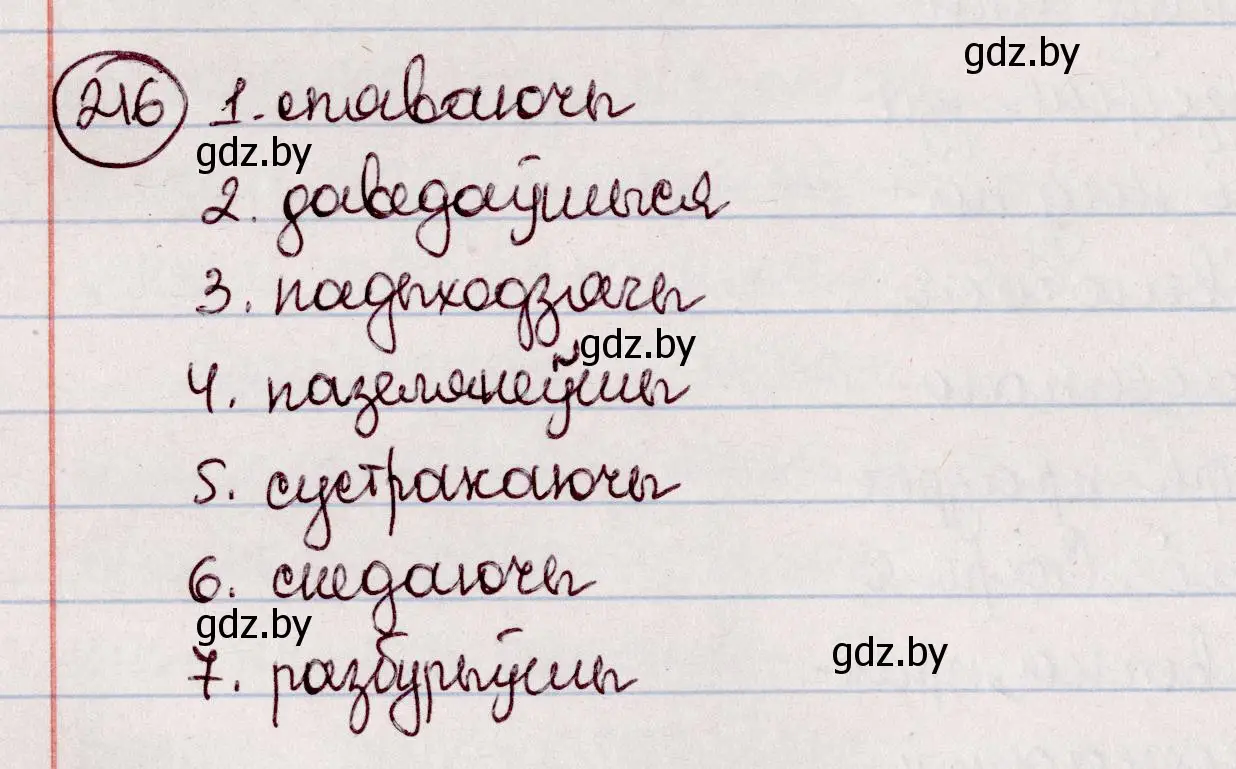 gdz.by
216 1. спяваючы
gdz.by
2. даведаўшыся
3. падыходзячы
gdz.by
4. пазелянеўшы
5. сустракаючы
6. снедаючы
gdz.by
7. разбурыўшы
gdz.by